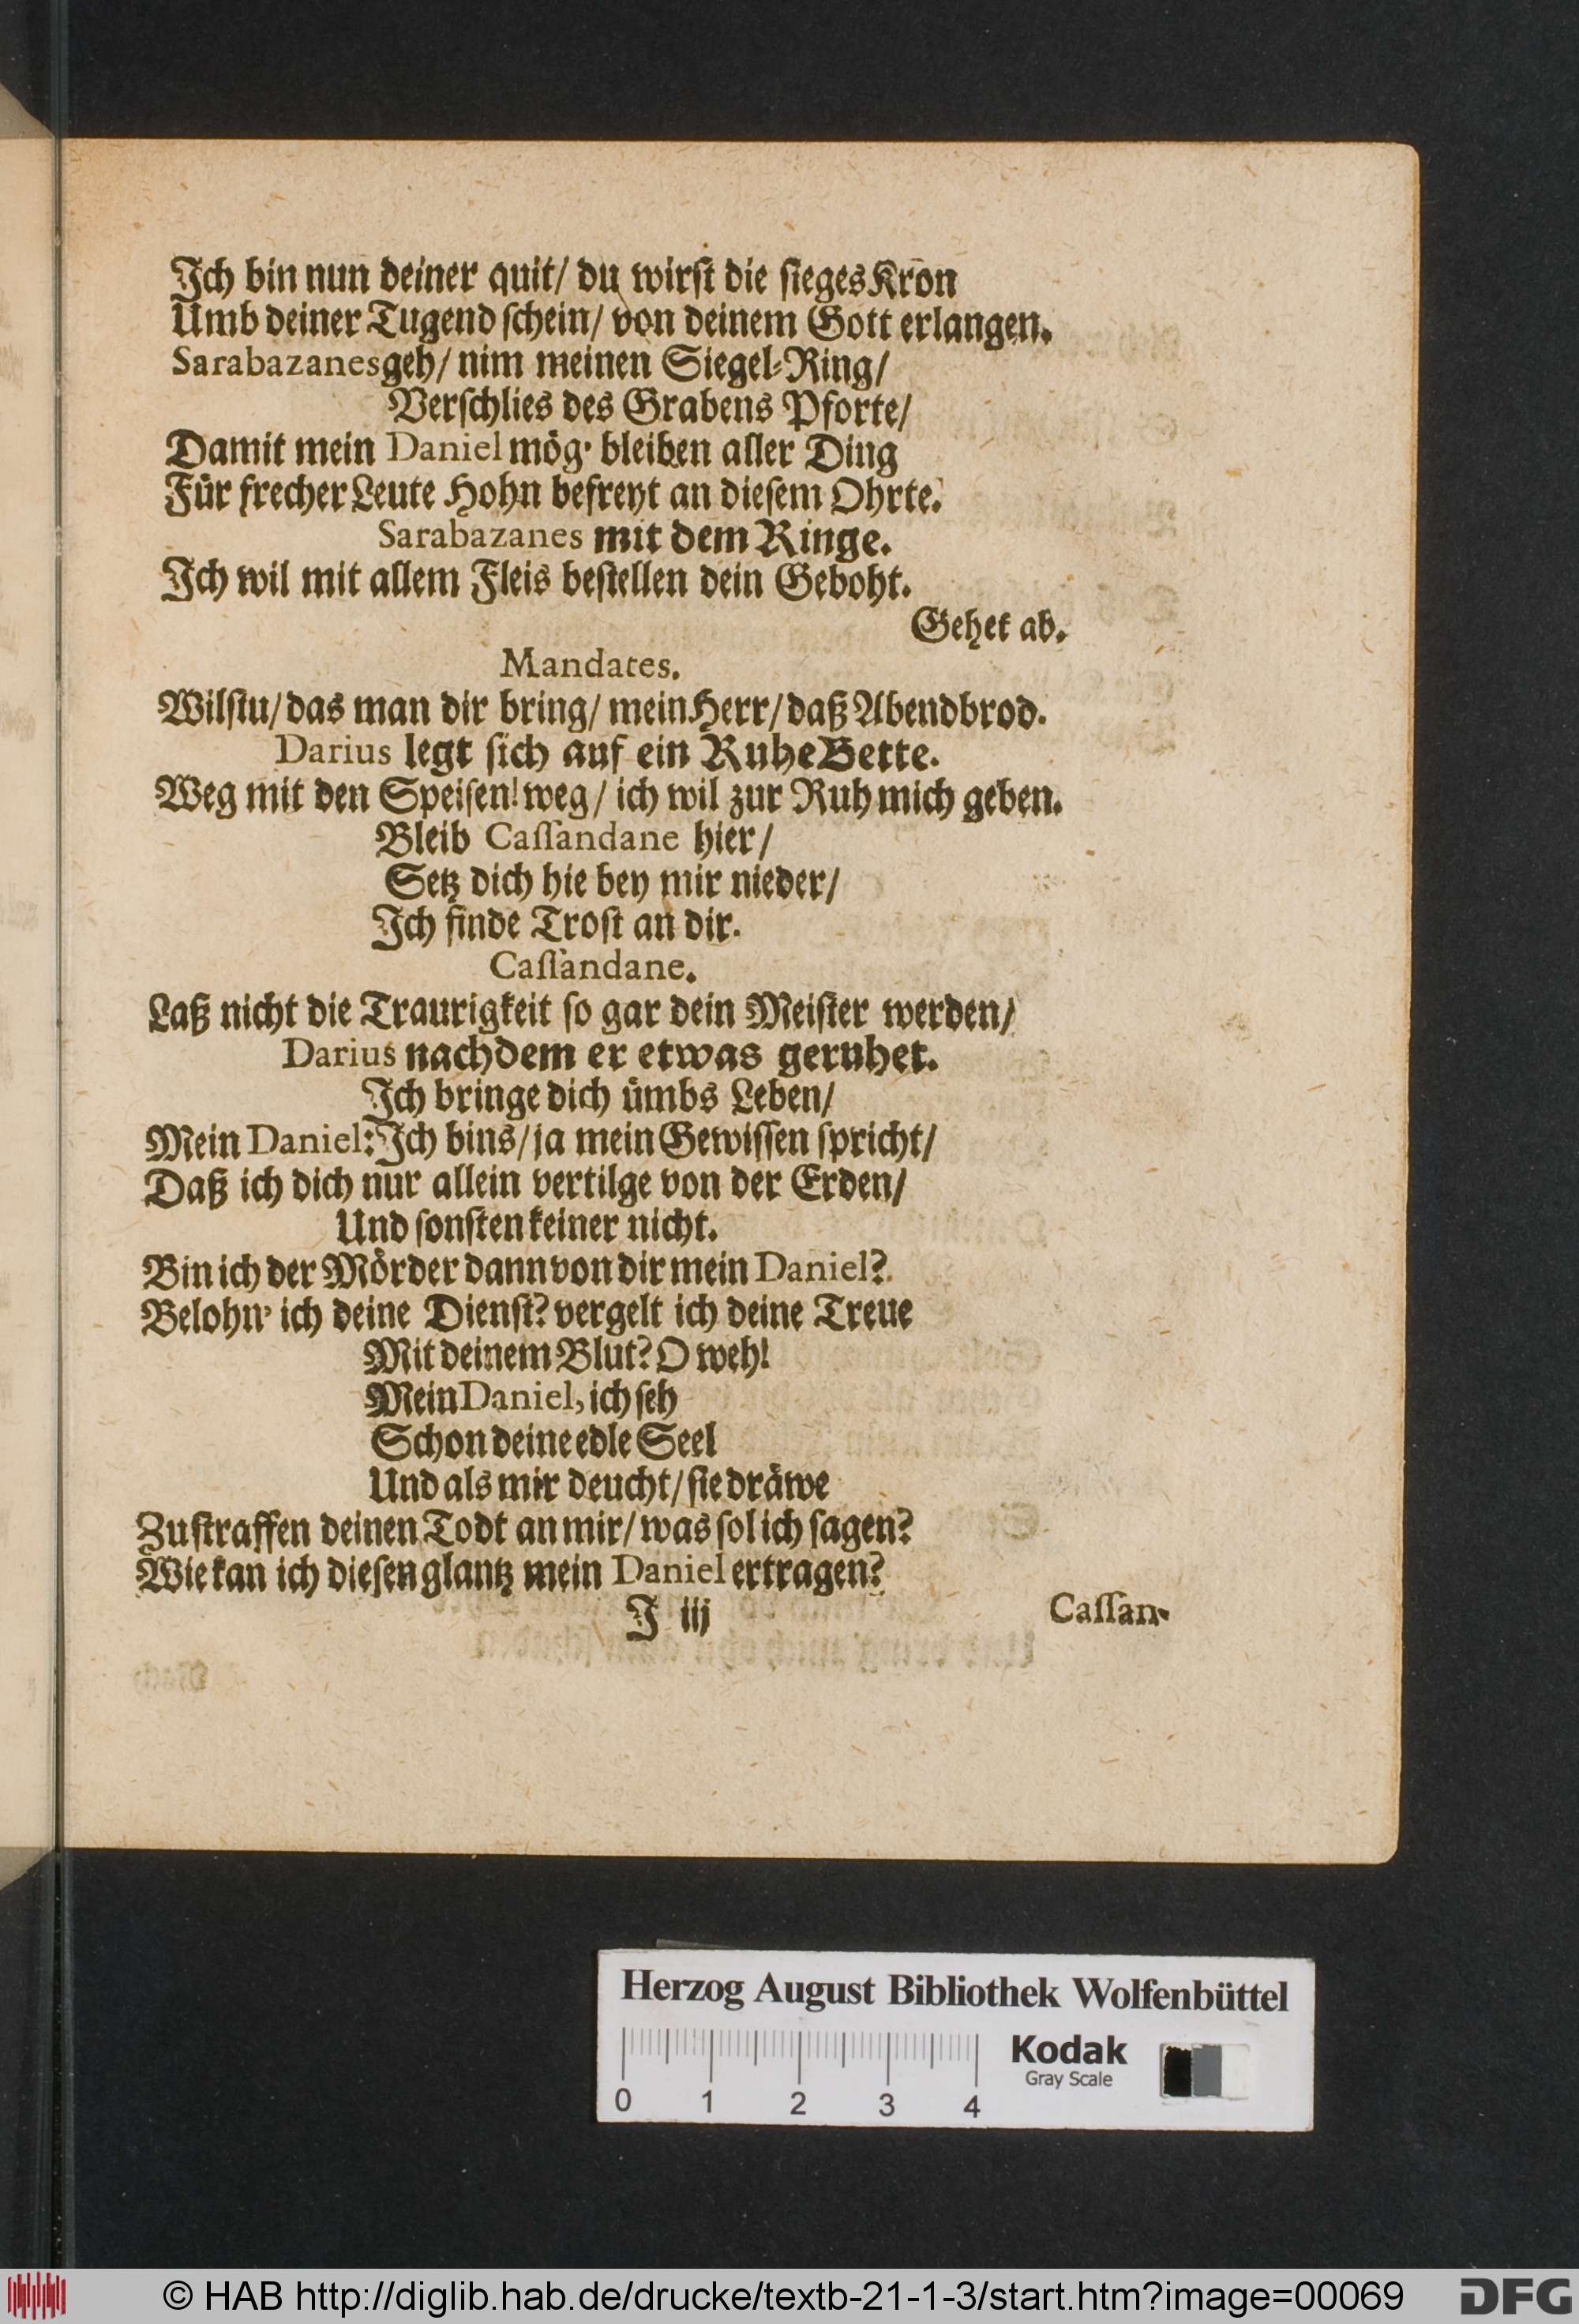 Ich bin nun deiner quit/ du wirſt die ſieges Kron
Umb deiner Tugend ſchein/ von deinem Gott erlangen.
Sarabazanes geh/ nim meinen Siegel-Ring/
Verſchlies des Grabens Pforte/
Damit mein Daniel mög' bleiben aller Ding
Für frecher Leute Hohn befreyt an dieſem Ohrte.
Sarabazanes mit dem Ringe.
Ich wil mit allem Fleis beſtellen dein Geboht.
Gehet ab.
Mandates.
Wilſtu/ das man dir bring/ mein Herr/ daß Abendbrod.
Darius legt ſich auf ein Ruhe Bette.
Weg mit den Speiſen! weg/ ich wil zur Ruh mich geben.
Bleib Caſſandane hier/
Setz dich hie bey mir nieder/
Ich finde Troſt an dir.
Caſſandane.
Laß nicht die Traurigkeit ſo gar dein Meiſter werden/
Darius nachdem er etwas geruhet.
Ich bringe dich ümbs Leben/
Mein Daniel: Ich bins/ ja mein Gewiſſen ſpricht/
Daß ich dich nur allein vertilge von der Erden/
Und ſonſten keiner nicht.
Bin ich der Mörder dann von dir mein Daniel?
Belohn' ich deine Dienſt? vergelt ich deine Treue
Mit deinem Blut? O weh!
Mein Daniel, ich ſeh
Schon deine edle Seel
Und als mir deucht/ ſie dräwe
Zuſtraffen deinen Todt an mir/ was ſol ich ſagen?
Wie kan ich dieſen glantz mein Daniel ertragen?
J iij
Caſſan-
Herzog August Bibliothek Wolfenbüttel
0 1 2 3 4
Kodak
Gray Scale
© HAB http://diglib.hab.de/drucke/textb-21-1-3/start.htm?image=00069
DFG